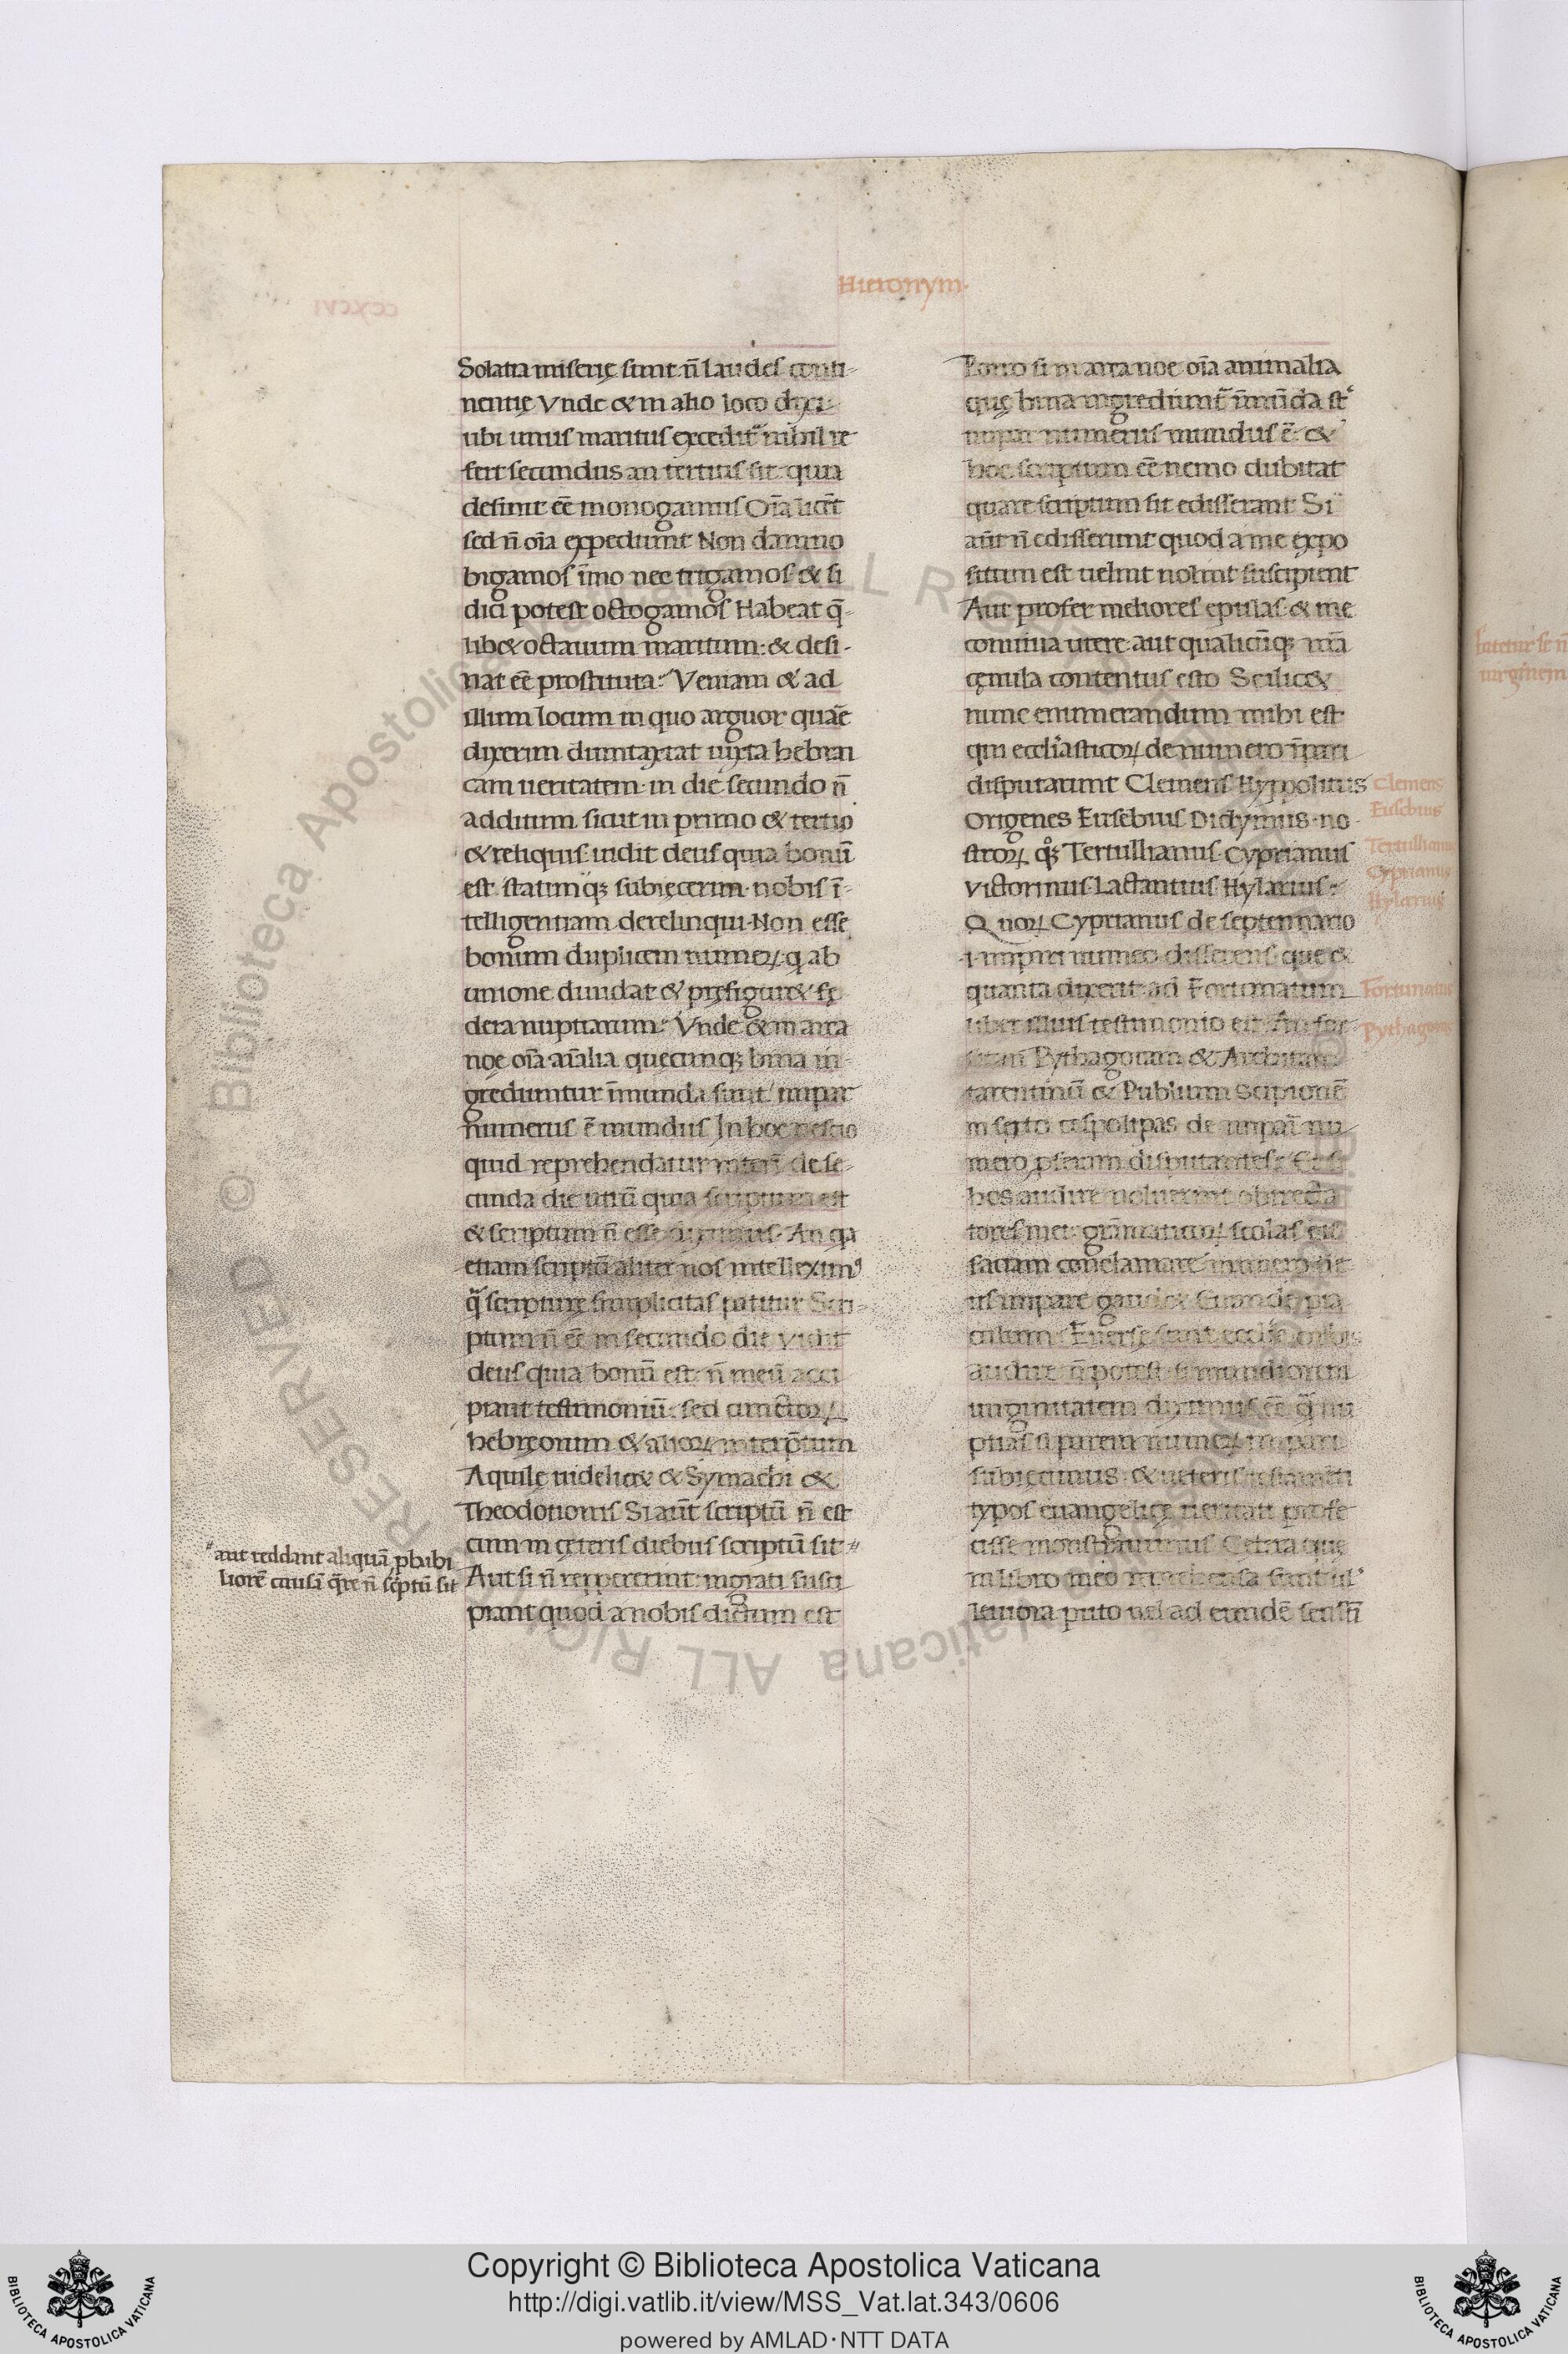 Hieronym·
Solatia miserię sunt n̄ laudes conti-
nentię Vnde & in alio loco dixi·
ubi unus maritus excedit᷑ nihil re
fert secundus an tertius sit· quia
desinit ēē monogamus Oīa licēt
sed n̄ oīa expediunt Non damno
bigamos īmo nec trigamos· & si
dici potest octogamos Habeat q̄-
lib& octauum maritum: & desi-
nat ēē prostituta: Veniam & ad
illum locum in quo arguor quare
dixerim dumtaxat iuxta hebrai
cam ueritatem· in die secundo n̄
additum sicut in primo & tertio
& reliquis· uidit deus quia bonū
est· statimq; subiecerim· nobis ī-
telligentiam derelinqui· Non esse
bonum duplicem numeꝝ· q ab
unione diuidat & pręfigur& fę
dera nuptiarum: Vnde & in arca
noe oīa aīalia quęcunq; bina in
grediuntur īmunda sunt· impar
numerus ē mundus In hoc nescio
quid reprehendatur interī de se-
cunda die utrū quia scriptum est
& scriptum n̄ esse diximus· An qa
etiam scriptū aliter nos intellexim⁹
q̄ scripturę simplicitas patitur Scri-
ptum n̄ ēē in secundo die Vidit
deus quia bonū est· n̄ meū acci
piant testimoniū· sed cunctoꝝ
hebręorum & alioꝝ interp̄tum
Aquilę uidelic& & Symachi &
Theodotionis Si aūt scriptū n̄ est
cum in cęteris diebus scriptū sit·//
Aut si n̄ reppererint· ingrati susci
piant quod a nobis dictum est
// aut reddant aliquā p̱babi
liorē causā q̄re n̄ scptū sit
Porro si in arca noe oīa animalia
quę bina ingrediunt᷑ īmūda st̄
impar numerus mundus ē· &
hoc scriptum ēē nemo dubitat
quare scriptum sit edisserant Si
aūt n̄ edisserunt quod a me expo
situm est uelint nolint suscipient
Aut profer meliores epulas· & me
conuiua utere· aut qualicūq; mā
cęnula contentus esto Scilic&
nunc enumerandum mihi est
qui eccl̄iasticoꝝ de numero īpari
disputarunt Clemens Hyppolitus
Origenes Eusebius Didymus· no-
stroꝝ q̊; Tertullianus· Cyprianus
Victorinus· Lactantius Hylarius·
Quoꝝ Cyprianus de septennario
·i· impari numeo disserens· que &
quanta dixerit ad Fortunatum
liber illius testimonio est An for
sitan Pythagoram & Architam
tarentinū & Publium Scipionē
in sexto de impari nu
mero disputantes: Et si
hos audire noluerint obtrecta
tores mei· grāmaticoꝝ scolas eis
faciam conclamare numero de
us impare gaud& Grande pia
culum· Euersę sunt eccl̄ię
audire n̄ potest· si mundiorem
uirginitatem diximus ēē q̄ nu
ptias si parem numeꝝ impari
subiecimus· & ueteris testam̄ti
typos euangelicę ueritati profe
cisse monstrauimus Cetera que
in libro meo reprehensa sunt ul'
leuiora puto uel ad eundē sensū
Clemens
Eusebius
Tertullianus
Cyprianus
Hylarius
Fortunatus
Pythagoras
fatetur se n̄
uirginem
Copyright © Biblioteca Apostolica Vaticana
http://digi.vatlib.it/view/MSS_Vat.lat.343/0606
powered by AMLAD·NTT DATA
BIBLIOTECA APOSTOLICA VATICANA
BIBLIOTECA APOSTOLICA VATICANA
© Biblioteca Apostolica Vaticana ALL RIGHTS RESERVED